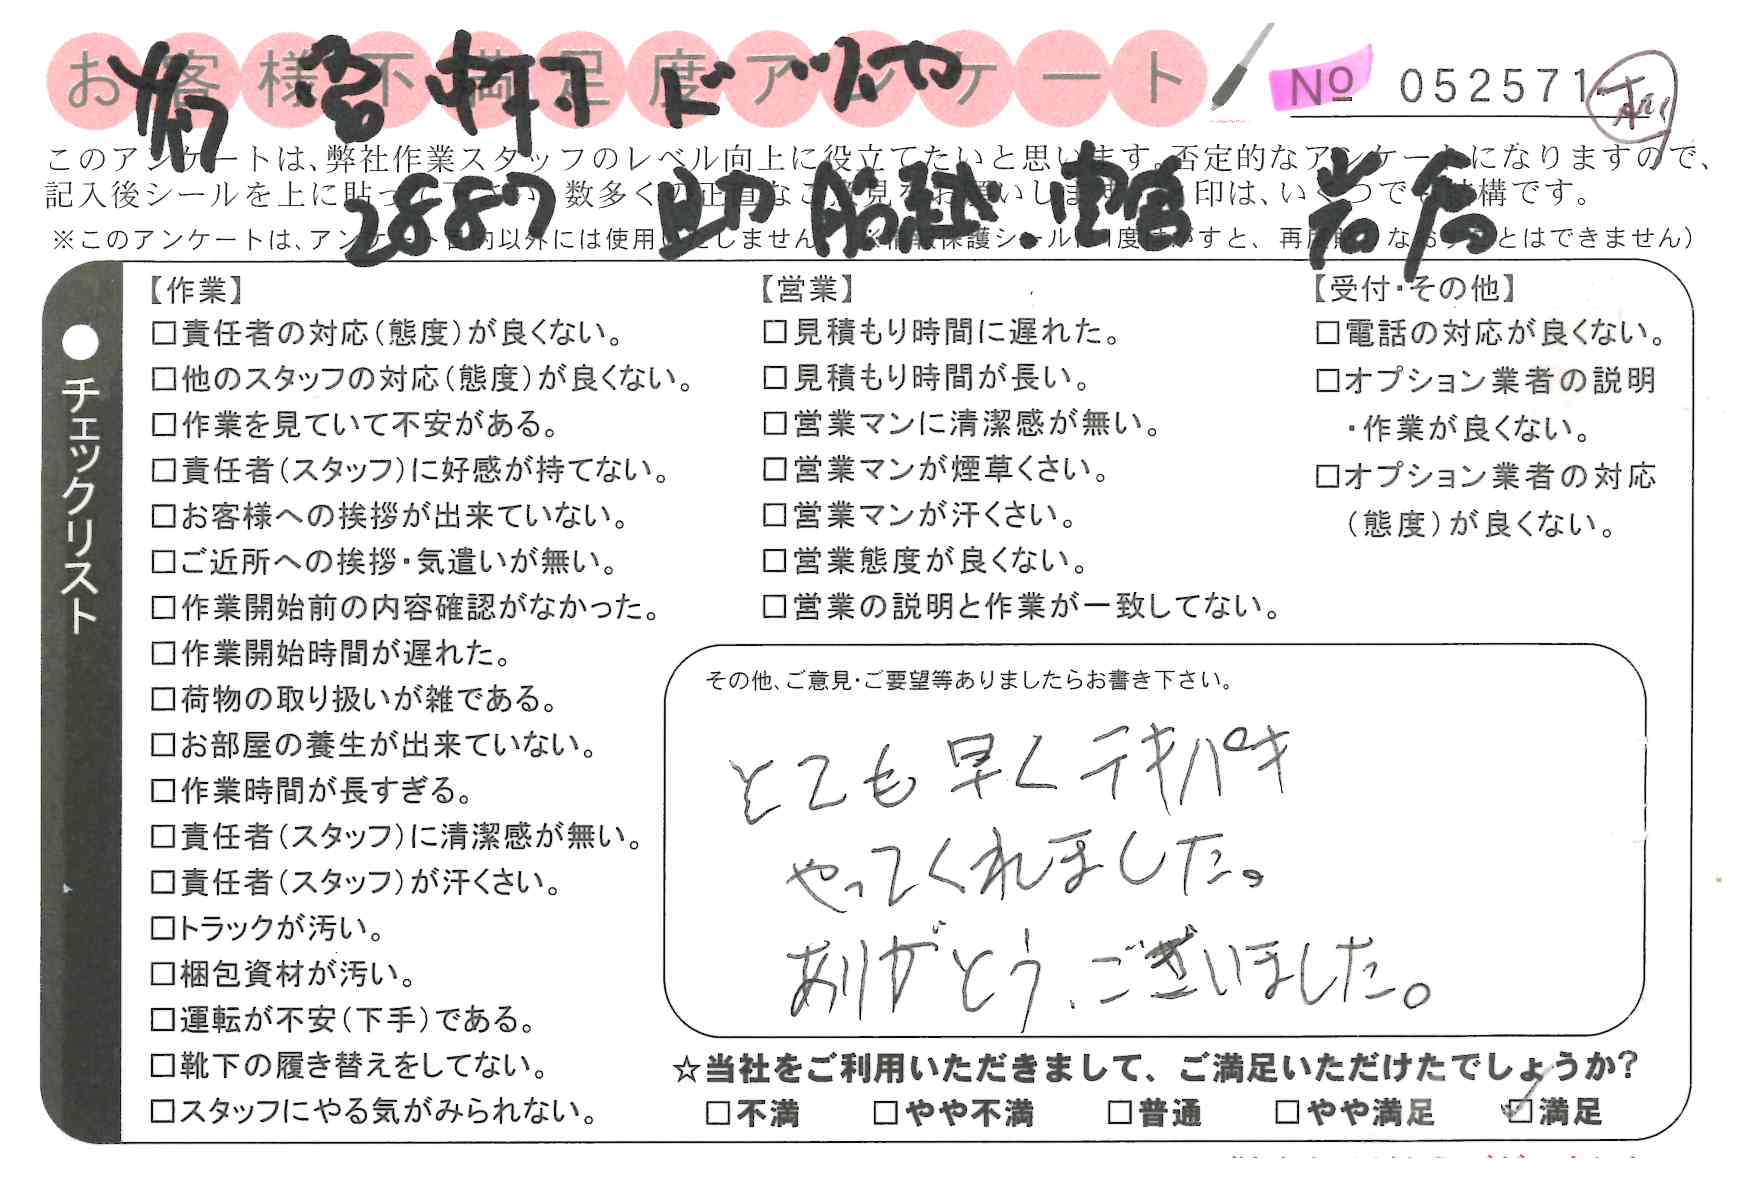 お客様不満足度アンケート
No 052571
このアンケートは、弊社作業スタッフのレベル向上に役立てたいと思います。否定的なアンケートになりますので、
記入後シールを上に貼って 数多くの正直なご意見をお願いします 印は、いくつでも結構です。
※このアンケートは、アンケート目的以外には使用いたしません ※情報保護シールは1度はがすと、再 なおすことはできません)
2887
●チェックリスト
【作業】
□責任者の対応(態度)が良くない。
□他のスタッフの対応(態度)が良くない。
□作業を見ていて不安がある。
□責任者(スタッフ)に好感が持てない。
□お客様への挨拶が出来ていない。
□ご近所への挨拶・気遣いが無い。
□作業開始前の内容確認がなかった。
□作業開始時間が遅れた。
□荷物の取り扱いが雑である。
□お部屋の養生が出来ていない。
□作業時間が長すぎる。
□責任者(スタッフ)に清潔感が無い。
□責任者(スタッフ)が汗くさい。
□トラックが汚い。
□梱包資材が汚い。
□運転が不安(下手)である。
□靴下の履き替えをしてない。
□スタッフにやる気がみられない。
【営業】
□見積もり時間に遅れた。
□見積もり時間が長い。
□営業マンに清潔感が無い。
□営業マンが煙草くさい。
□営業マンが汗くさい。
□営業態度が良くない。
□営業の説明と作業が一致してない。
【受付・その他】
□電話の対応が良くない。
□オプション業者の説明
・作業が良くない。
□オプション業者の対応
(態度)が良くない。
その他、ご意見・ご要望等ありましたらお書き下さい。
とても早くテキパキ
やってくれました。
ありがとう、ございました。
☆当社をご利用いただきまして、ご満足いただけたでしょうか?
□不満 □やや不満 □普通 □やや満足 ☑満足